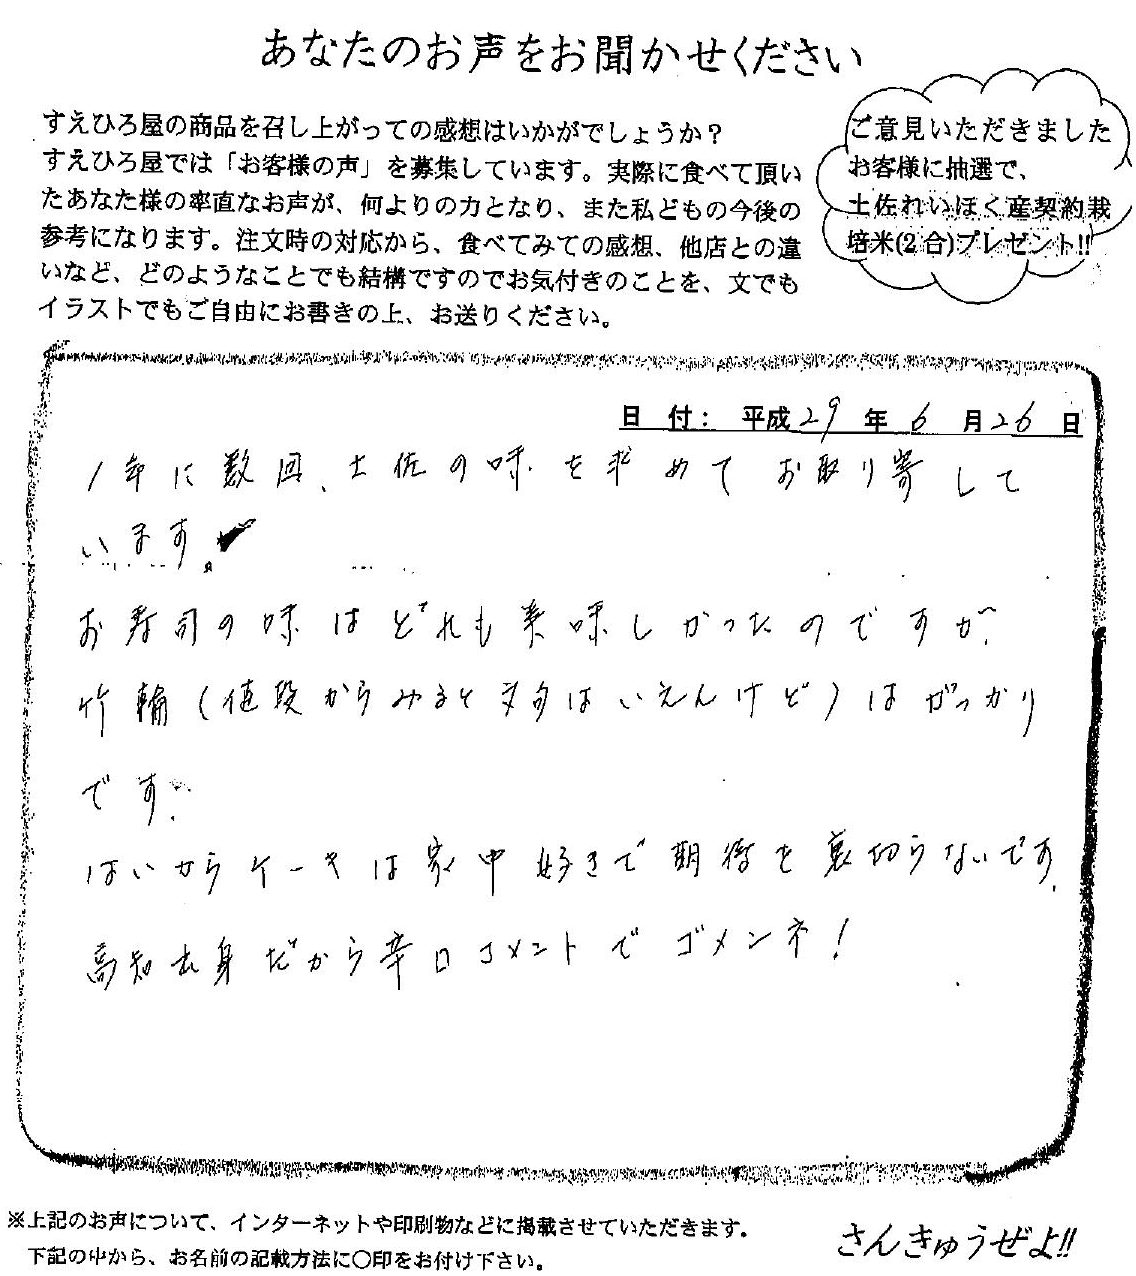 あなたのお声をお聞かせください
すえひろ屋の商品を召し上がっての感想はいかがでしょうか？
すえひろ屋では「お客様の声」を募集しています。実際に食べて頂い
たあなた様の率直なお声が、何よりの力となり、また私どもの今後の
参考になります。注文時の対応から、食べてみての感想、他店との違
いなど、どのようなことでも結構ですのでお気付きのことを、文でも
イラストでもご自由にお書きの上、お送りください。
ご意見いただきました
お客様に抽選で、
土佐れいほく産契約栽
培米(2合)プレゼント!!
日 付： 平成29年6月26日
1年に数回、土佐の味を求めてお取り寄して
います。
お寿司の味はどれも美味しかったのですが、
竹輪(値段からみると文句はいえんけど)はがっかり
です。
はいからケーキは家中好きで期待を裏切らないです。
高知出身だから辛口コメントでゴメンネ!
※上記のお声について、インターネットや印刷物などに掲載させていただきます。
下記の中から、お名前の記載方法に〇印をお付け下さい。
さんきゅうぜよ!!